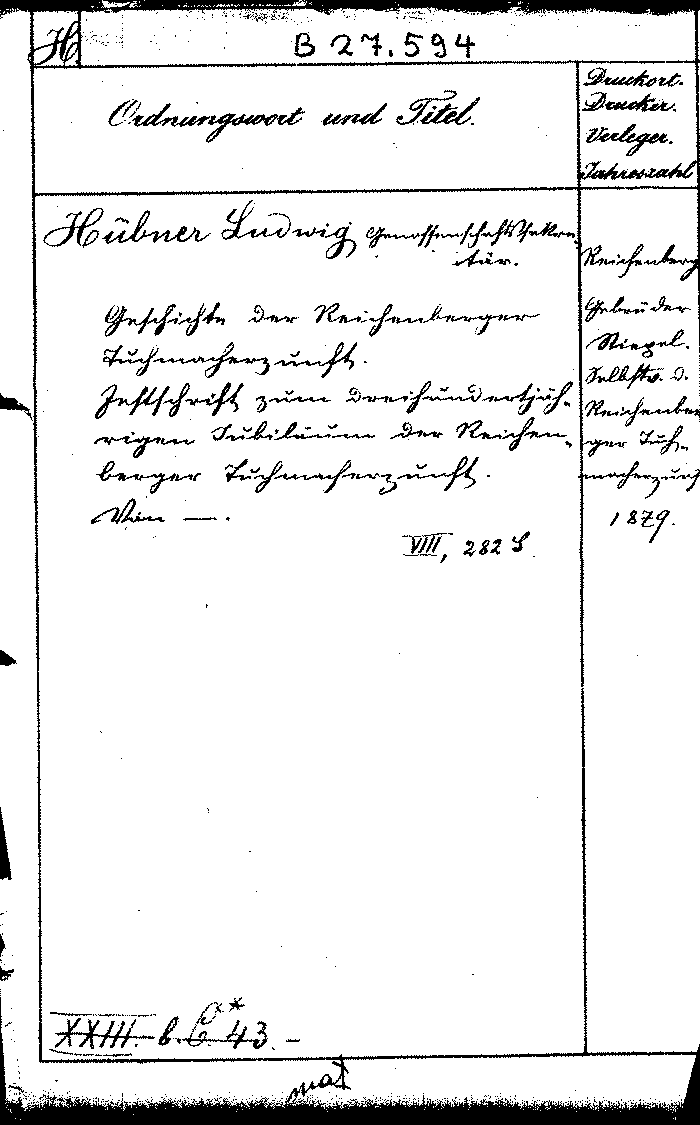 H
B 27.594
Ordnungswort und Titel.
Druckort.
Drucker.
Verleger.
Jahreszahl
Hübner Ludwig, Genossenschaftssekre-
tär.
Geschichte der Reichenberger
Tuchmacherzunft.
Festschrift zum dreihundertjäh-
rigen Jubiläum der Reichen-
berger Tuchmacherzunft.
Von —.
VIII, 282 S.
Reichenberg
Gebrüder
Stiepel.
Selbstv. d.
Reichenber
ger Tuch-
macherzunf
1879.
XXIII. b. C 43.–